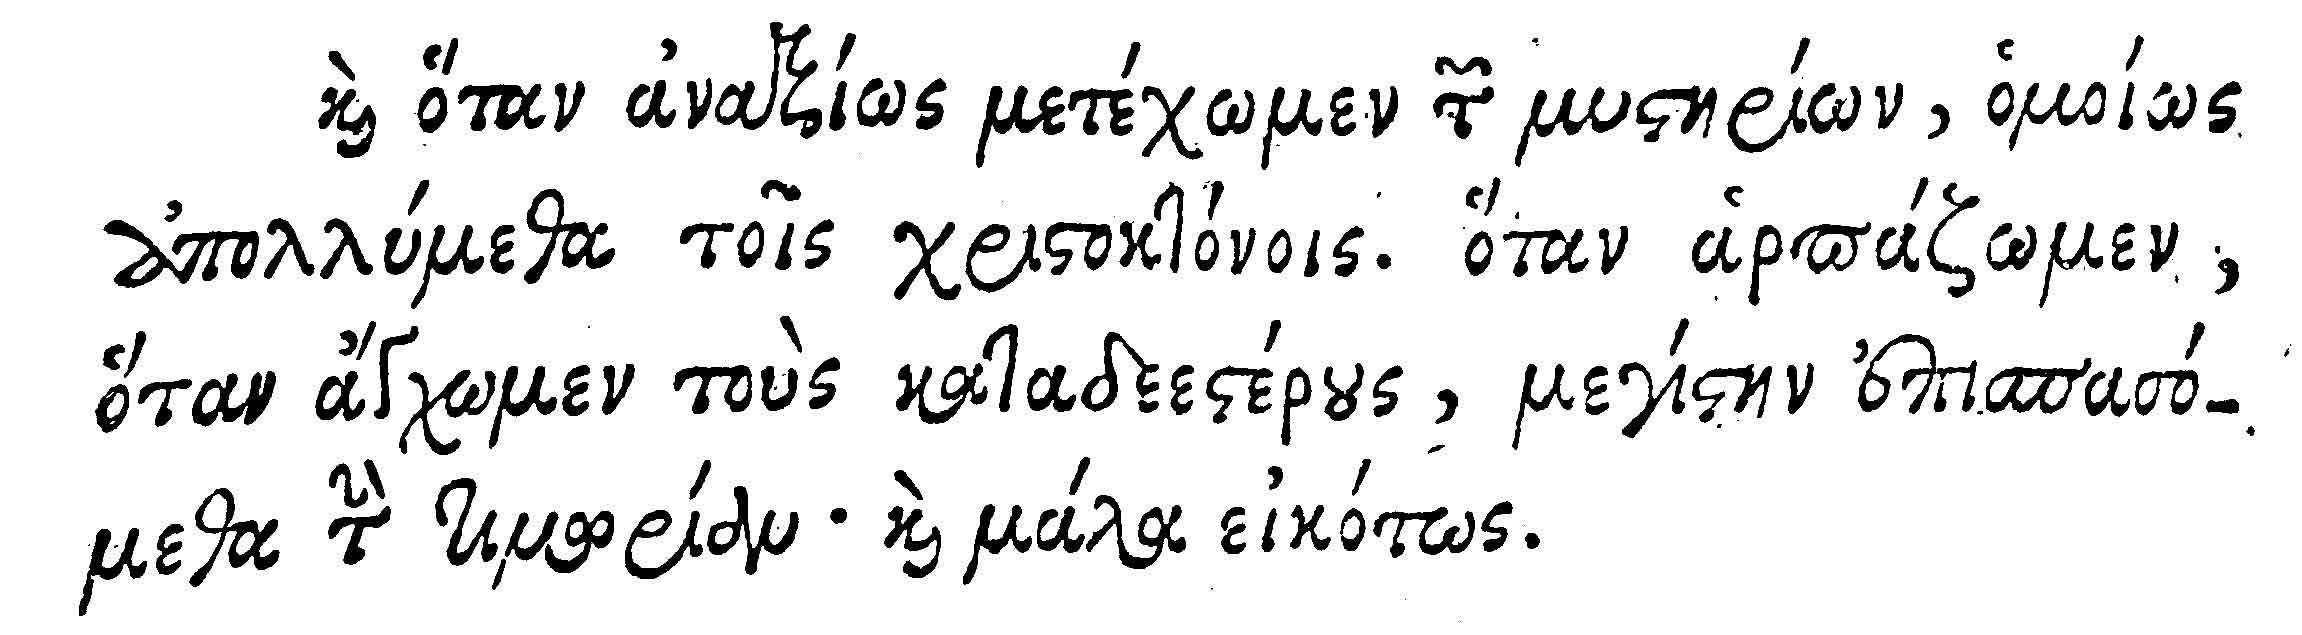 ϗ ὅταν ἀναξίως μετέχωμεν τ῀ μυϛηρίων, ὁμοίως
ἀπολλύμεθα τοῖς χριϛοκτόνοις. ὅταν ἁρπάζωμεν,
ὅταν ἄγχωμεν τοὺς καταδεεϛέρȣς, μεγίϛην ἐπισπασό-
μεθα τὴν τιμωρίαν · ϗ μάλα εἰκότως.